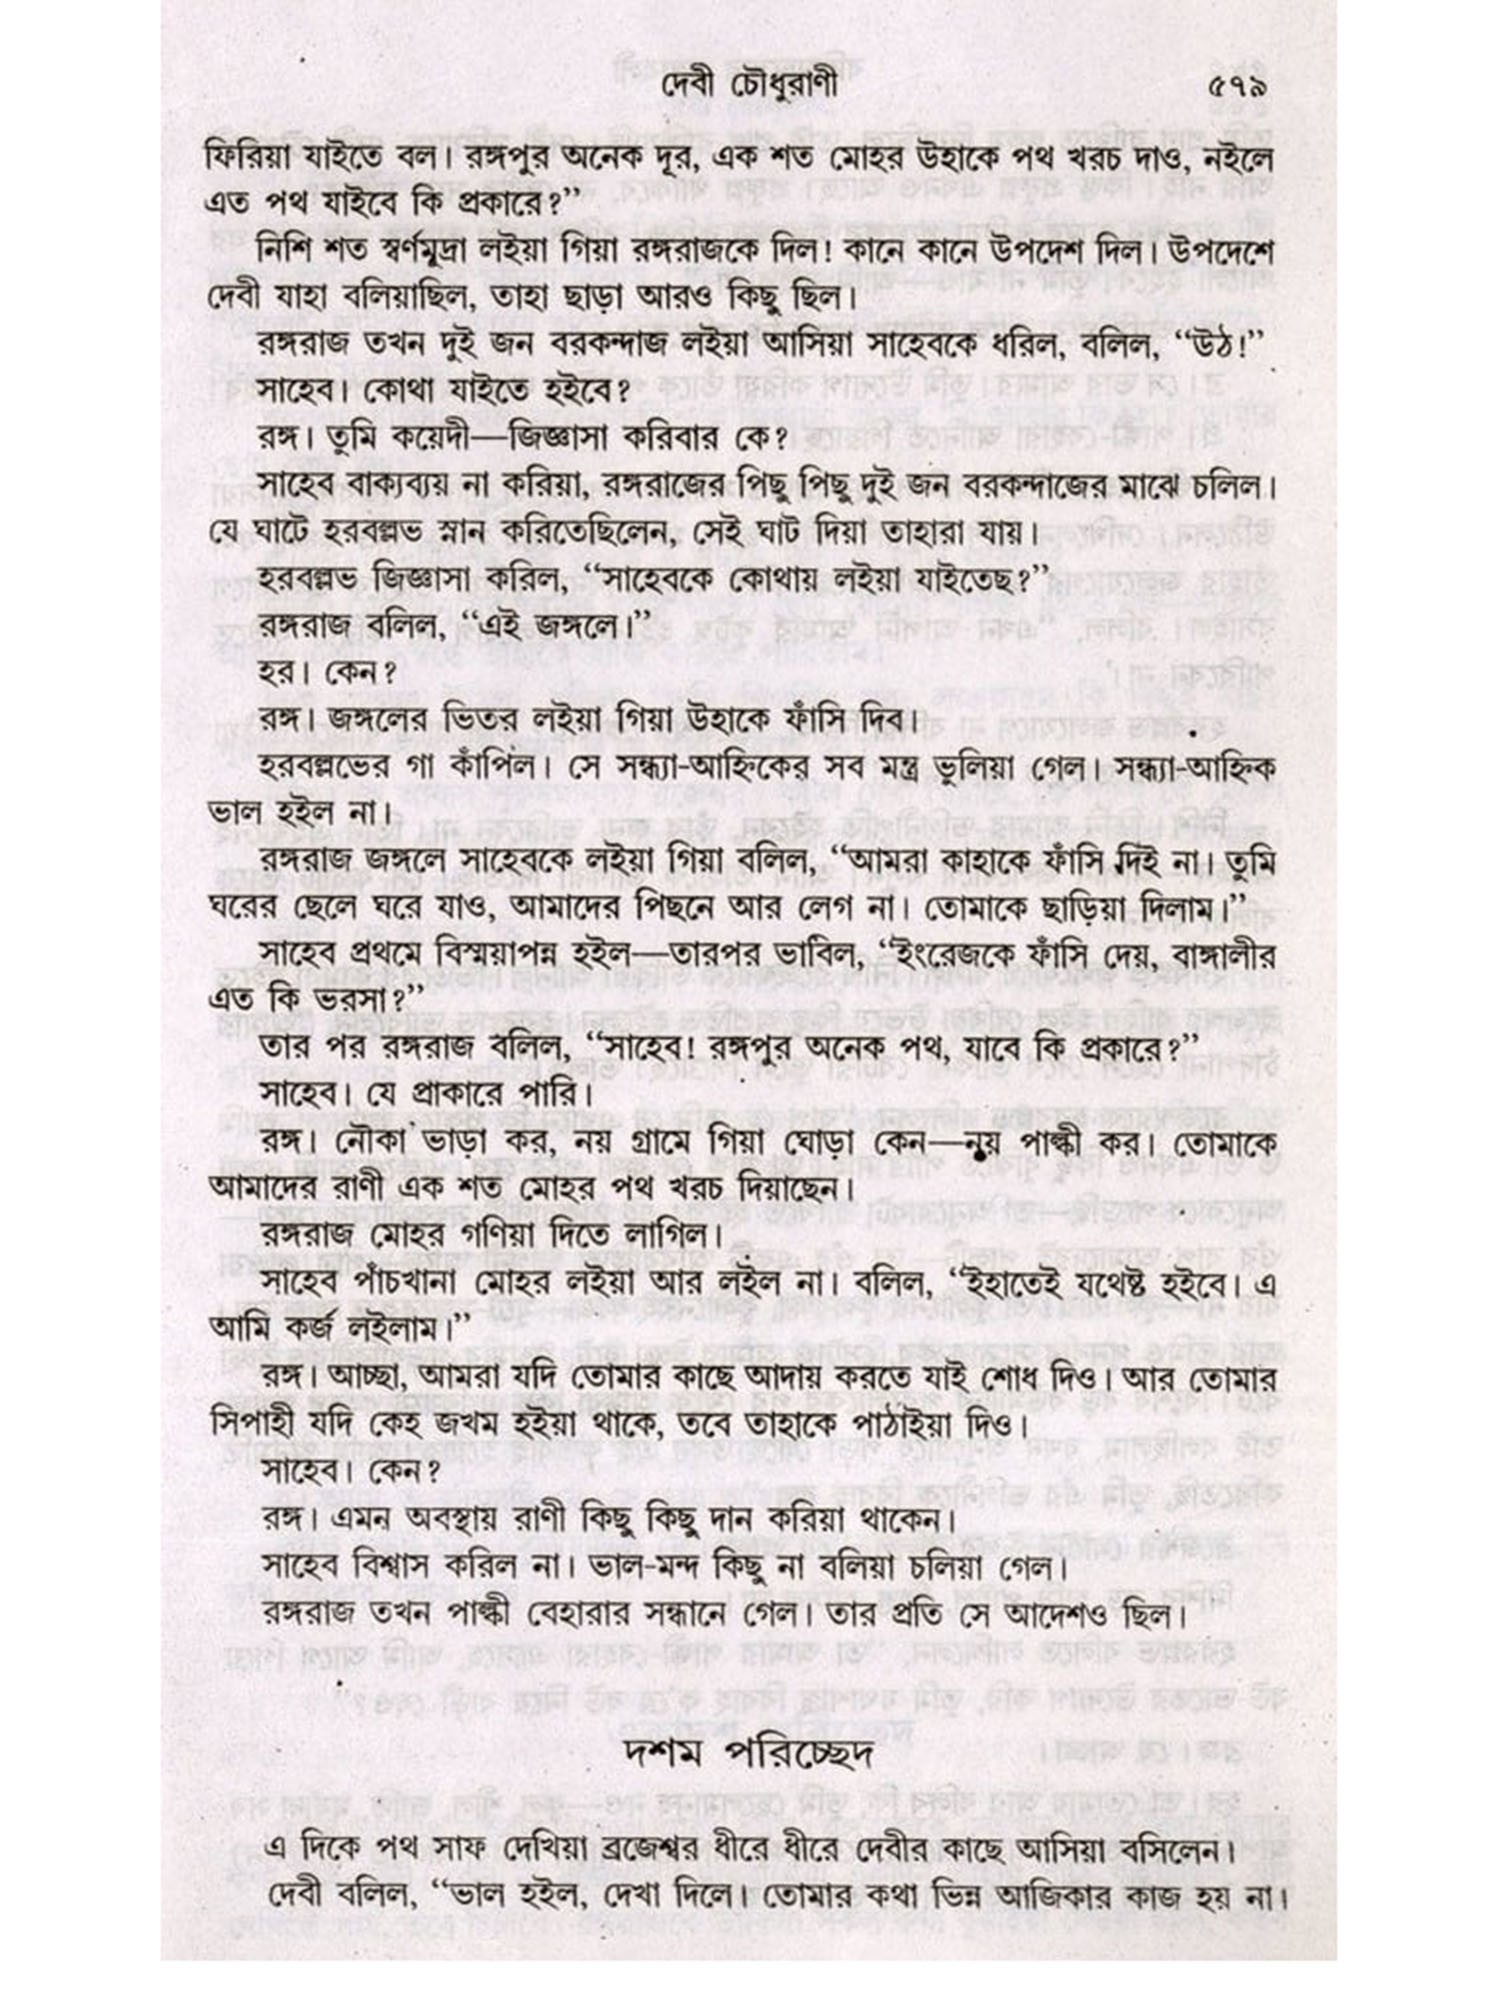 দেবী চৌধুরাণী ৫৭৯
ফিরিয়া যাইতে বল। রঙ্গপুর অনেক দূর, এক শত মোহর উহাকে পথ খরচ দাও, নইলে
এত পথ যাইবে কি প্রকারে?”
নিশি শত স্বর্ণমুদ্রা লইয়া গিয়া রঙ্গরাজকে দিল! কানে কানে উপদেশ দিল। উপদেশে
দেবী যাহা বলিয়াছিল, তাহা ছাড়া আরও কিছু ছিল।
রঙ্গরাজ তখন দুই জন বরকন্দাজ লইয়া আসিয়া সাহেবকে ধরিল, বলিল, “উঠ!”
সাহেব। কোথা যাইতে হইবে?
রঙ্গ। তুমি কয়েদী—জিজ্ঞাসা করিবার কে?
সাহেব বাক্যব্যয় না করিয়া, রঙ্গরাজের পিছু পিছু দুই জন বরকন্দাজের মাঝে চলিল।
যে ঘাটে হরবল্লভ স্নান করিতেছিলেন, সেই ঘাট দিয়া তাহারা যায়।
হরবল্লভ জিজ্ঞাসা করিল, “সাহেবকে কোথায় লইয়া যাইতেছ?”
রঙ্গরাজ বলিল, “এই জঙ্গলে।”
হর। কেন?
রঙ্গ। জঙ্গলের ভিতর লইয়া গিয়া উহাকে ফাঁসি দিব।
হরবল্লভের গা কাঁপিল। সে সন্ধ্যা-আহ্নিকের সব মন্ত্র ভুলিয়া গেল। সন্ধ্যা-আহ্নিক
ভাল হইল না।
রঙ্গরাজ জঙ্গলে সাহেবকে লইয়া গিয়া বলিল, “আমরা কাহাকে ফাঁসি দিই না। তুমি
ঘরের ছেলে ঘরে যাও, আমাদের পিছনে আর লেগ না। তোমাকে ছাড়িয়া দিলাম।”
সাহেব প্রথমে বিস্ময়াপন্ন হইল—তারপর ভাবিল, “ইংরেজকে ফাঁসি দেয়, বাঙ্গালীর
এত কি ভরসা?”
তার পর রঙ্গরাজ বলিল, “সাহেব! রঙ্গপুর অনেক পথ, যাবে কি প্রকারে?”
সাহেব। যে প্রাকারে পারি।
রঙ্গ। নৌকা ভাড়া কর, নয় গ্রামে গিয়া ঘোড়া কেন—নয় পাল্কী কর। তোমাকে
আমাদের রাণী এক শত মোহর পথ খরচ দিয়াছেন।
রঙ্গরাজ মোহর গণিয়া দিতে লাগিল।
সাহেব পাঁচখানা মোহর লইয়া আর লইল না। বলিল, “ইহাতেই যথেষ্ট হইবে। এ
আমি কর্জ লইলাম।”
রঙ্গ। আচ্ছা, আমরা যদি তোমার কাছে আদায় করতে যাই শোধ দিও। আর তোমার
সিপাহী যদি কেহ জখম হইয়া থাকে, তবে তাহাকে পাঠাইয়া দিও।
সাহেব। কেন?
রঙ্গ। এমন অবস্থায় রাণী কিছু কিছু দান করিয়া থাকেন।
সাহেব বিশ্বাস করিল না। ভাল-মন্দ কিছু না বলিয়া চলিয়া গেল।
রঙ্গরাজ তখন পাল্কী বেহারার সন্ধানে গেল। তার প্রতি সে আদেশও ছিল।
দশম পরিচ্ছেদ
এ দিকে পথ সাফ দেখিয়া ব্রজেশ্বর ধীরে ধীরে দেবীর কাছে আসিয়া বসিলেন।
দেবী বলিল, “ভাল হইল, দেখা দিলে। তোমার কথা ভিন্ন আজিকার কাজ হয় না।